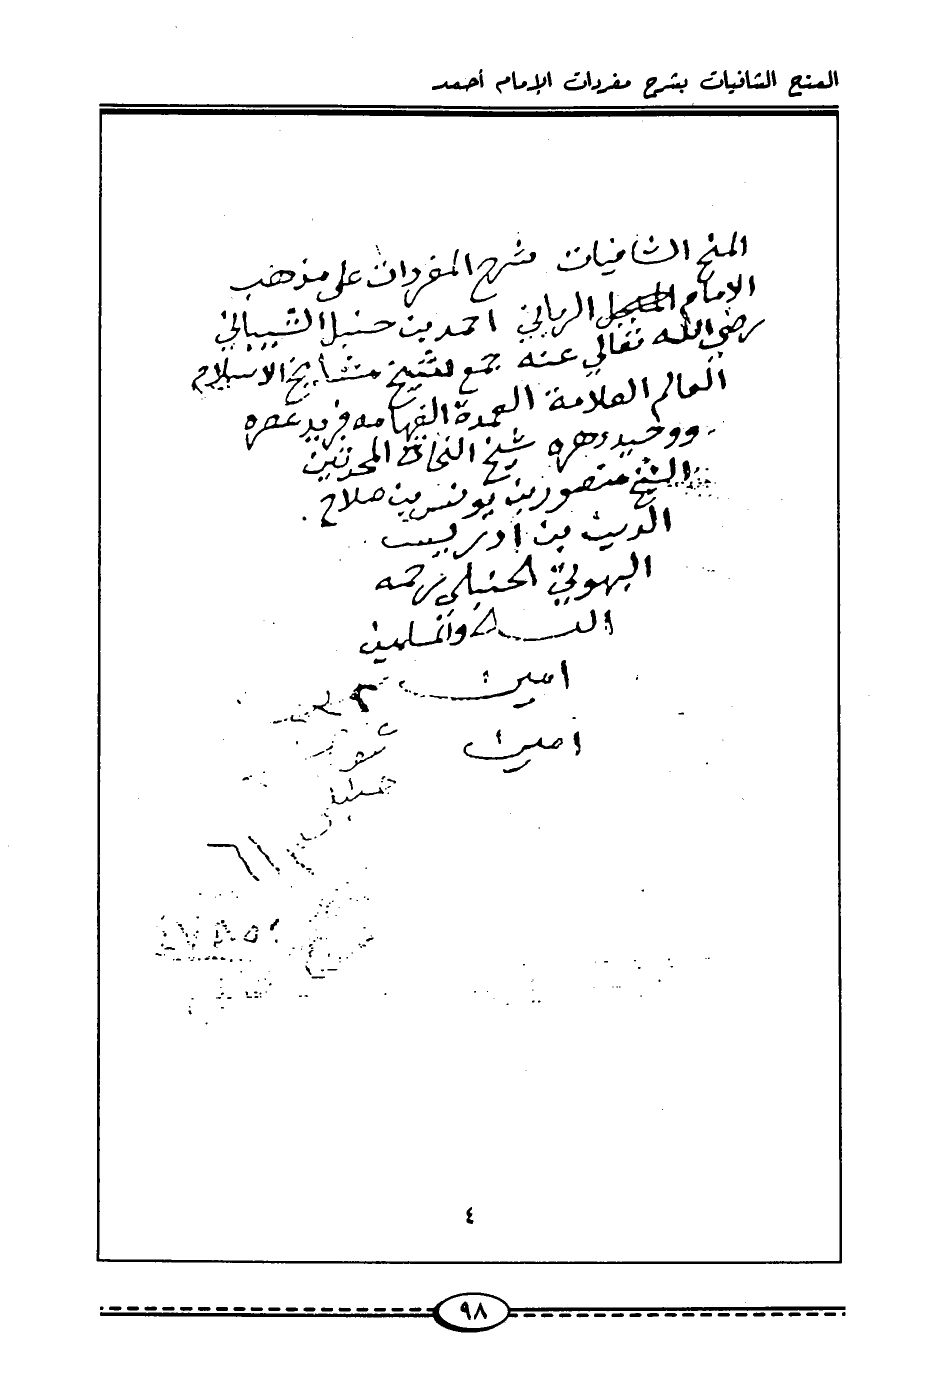 المنح الشافيات بشرح مفردات الإمام أحمد
المنح الشافيات بشرح المفردات على مذهب
الامام المبجل الرباني احمد بن حنبل الشيباني
رضي الله تعالى عنه جمع لشيخ مشايخ الاسلام
العالم العلامة العمدة الفهامه فريد عصره
ووحيد دهره شيخ النحاة المحدثين
الشيخ منصور بن يونس بن صلاح
الدين بن ادريس
البهوتي الحنبلي رحمه
الله والمسلمين
امين
امين
حنبلي
٤
٩٨